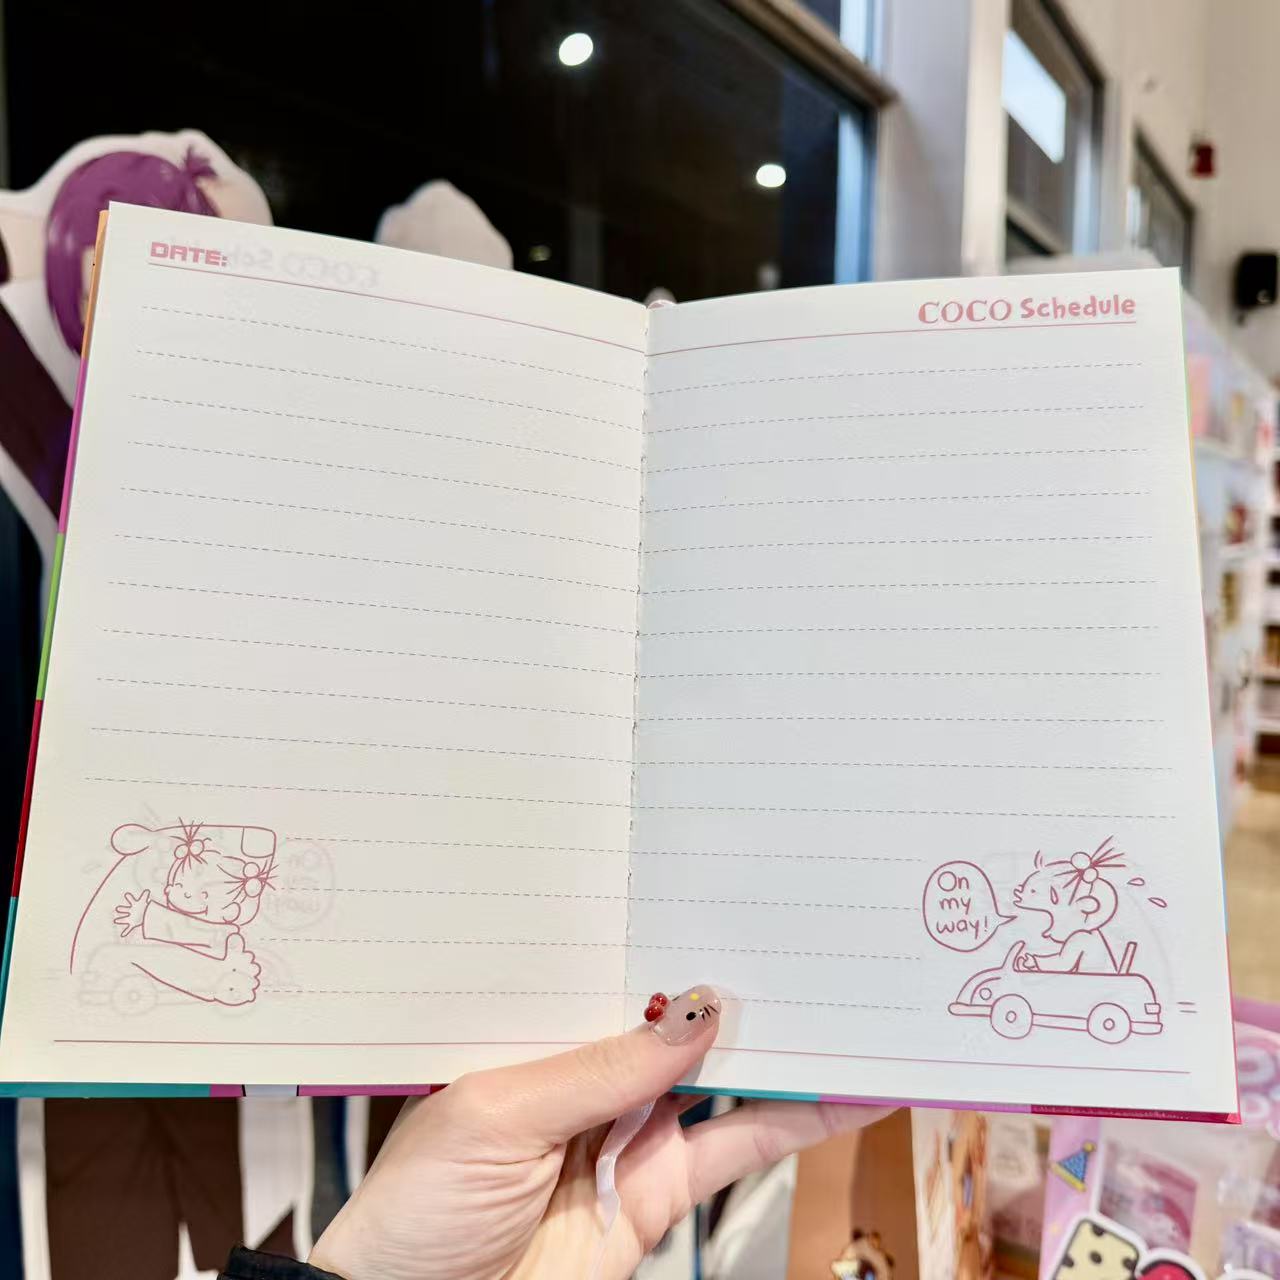 DATE:
COCO Schedule
On
my
way!